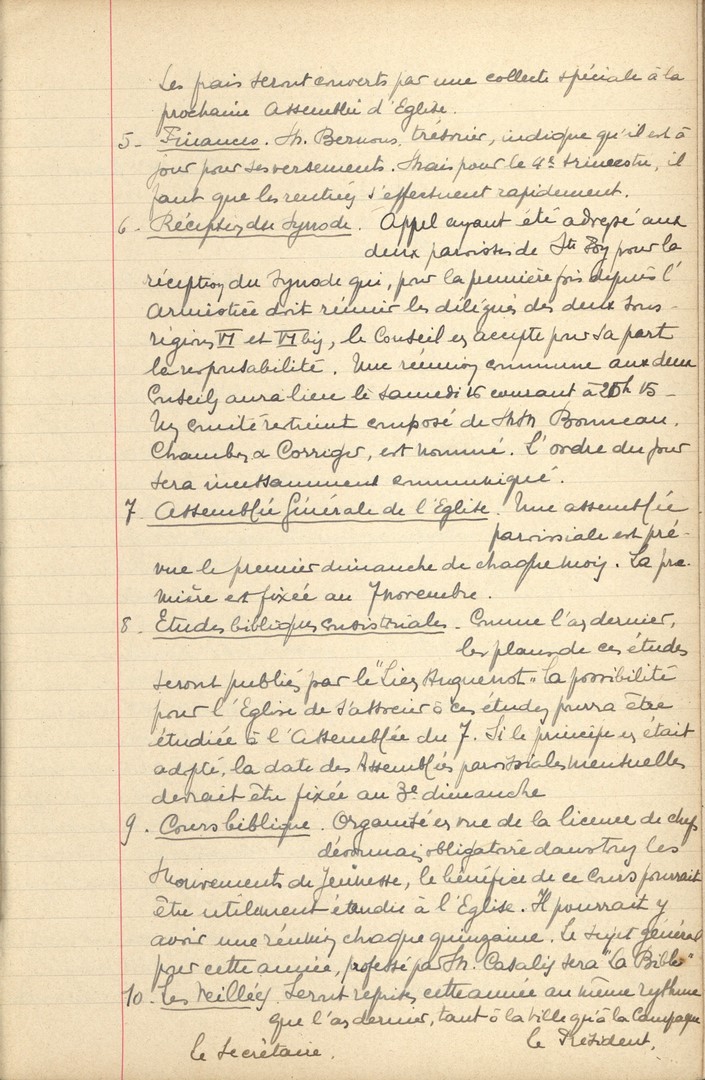 Les frais seront couverts par une collecte spéciale à la
prochaine Assemblée d'Eglise.
5_ Finances. M. Bernous, trésorier, indique qu'il est à
jour pour ses versements. Mais pour le 4e trimestre, il
faut que les rentrées s'effectuent rapidement.
6_ Réception du Synode. Appel ayant été adressé aux
deux paroisses de Ste Foy pour la
réception du Synode qui, pour la première fois depuis l'
Armistice doit réunir les délégués des deux sous-
régions VI et VI bis, le Conseil en accepte pour sa part
la responsabilité. Une réunion commune aux deux
Conseils aura lieu le samedi 16 courant à 20h 15_
Un comité restreint composé de MM Bonneau,
Chambon & Corriger, est nommé. L'ordre du jour
sera incessamment communiqué.
7_ Assemblée Générale de l'Eglise. Une assemblée
paroissiale est pré-
vue le premier dimanche de chaque mois. La pre-
mière est fixée au 7 novembre.
8_ Etudes bibliques consistoriales. Comme l'an dernier,
les plans de ces études
seront publiés par le "Lien Huguenot". La possibilité
pour l'Eglise de s'associer à ces études pourra être
étudiée à l'Assemblée du 7. Si le principe en était
adopté, la date des Assemblées paroissiales mensuelles
devrait être fixée au 3e dimanche
9. Cours biblique. Organisé en vue de la licence de chefs
désormais obligatoire dans tous les
Mouvements de Jeunesse, le bénéfice de ce Cours pourrait
être utilement étendu à l'Eglise. Il pourrait y
avoir une réunion chaque quinzaine. Le sujet général
pour cette année, professé par M. Casalis sera "La Bible"
10. Les Veillées. Seront reprises cette année au même rythme
que l'an dernier, tant à la Ville qu'à la Campagne
le Secrétaire. le Président.